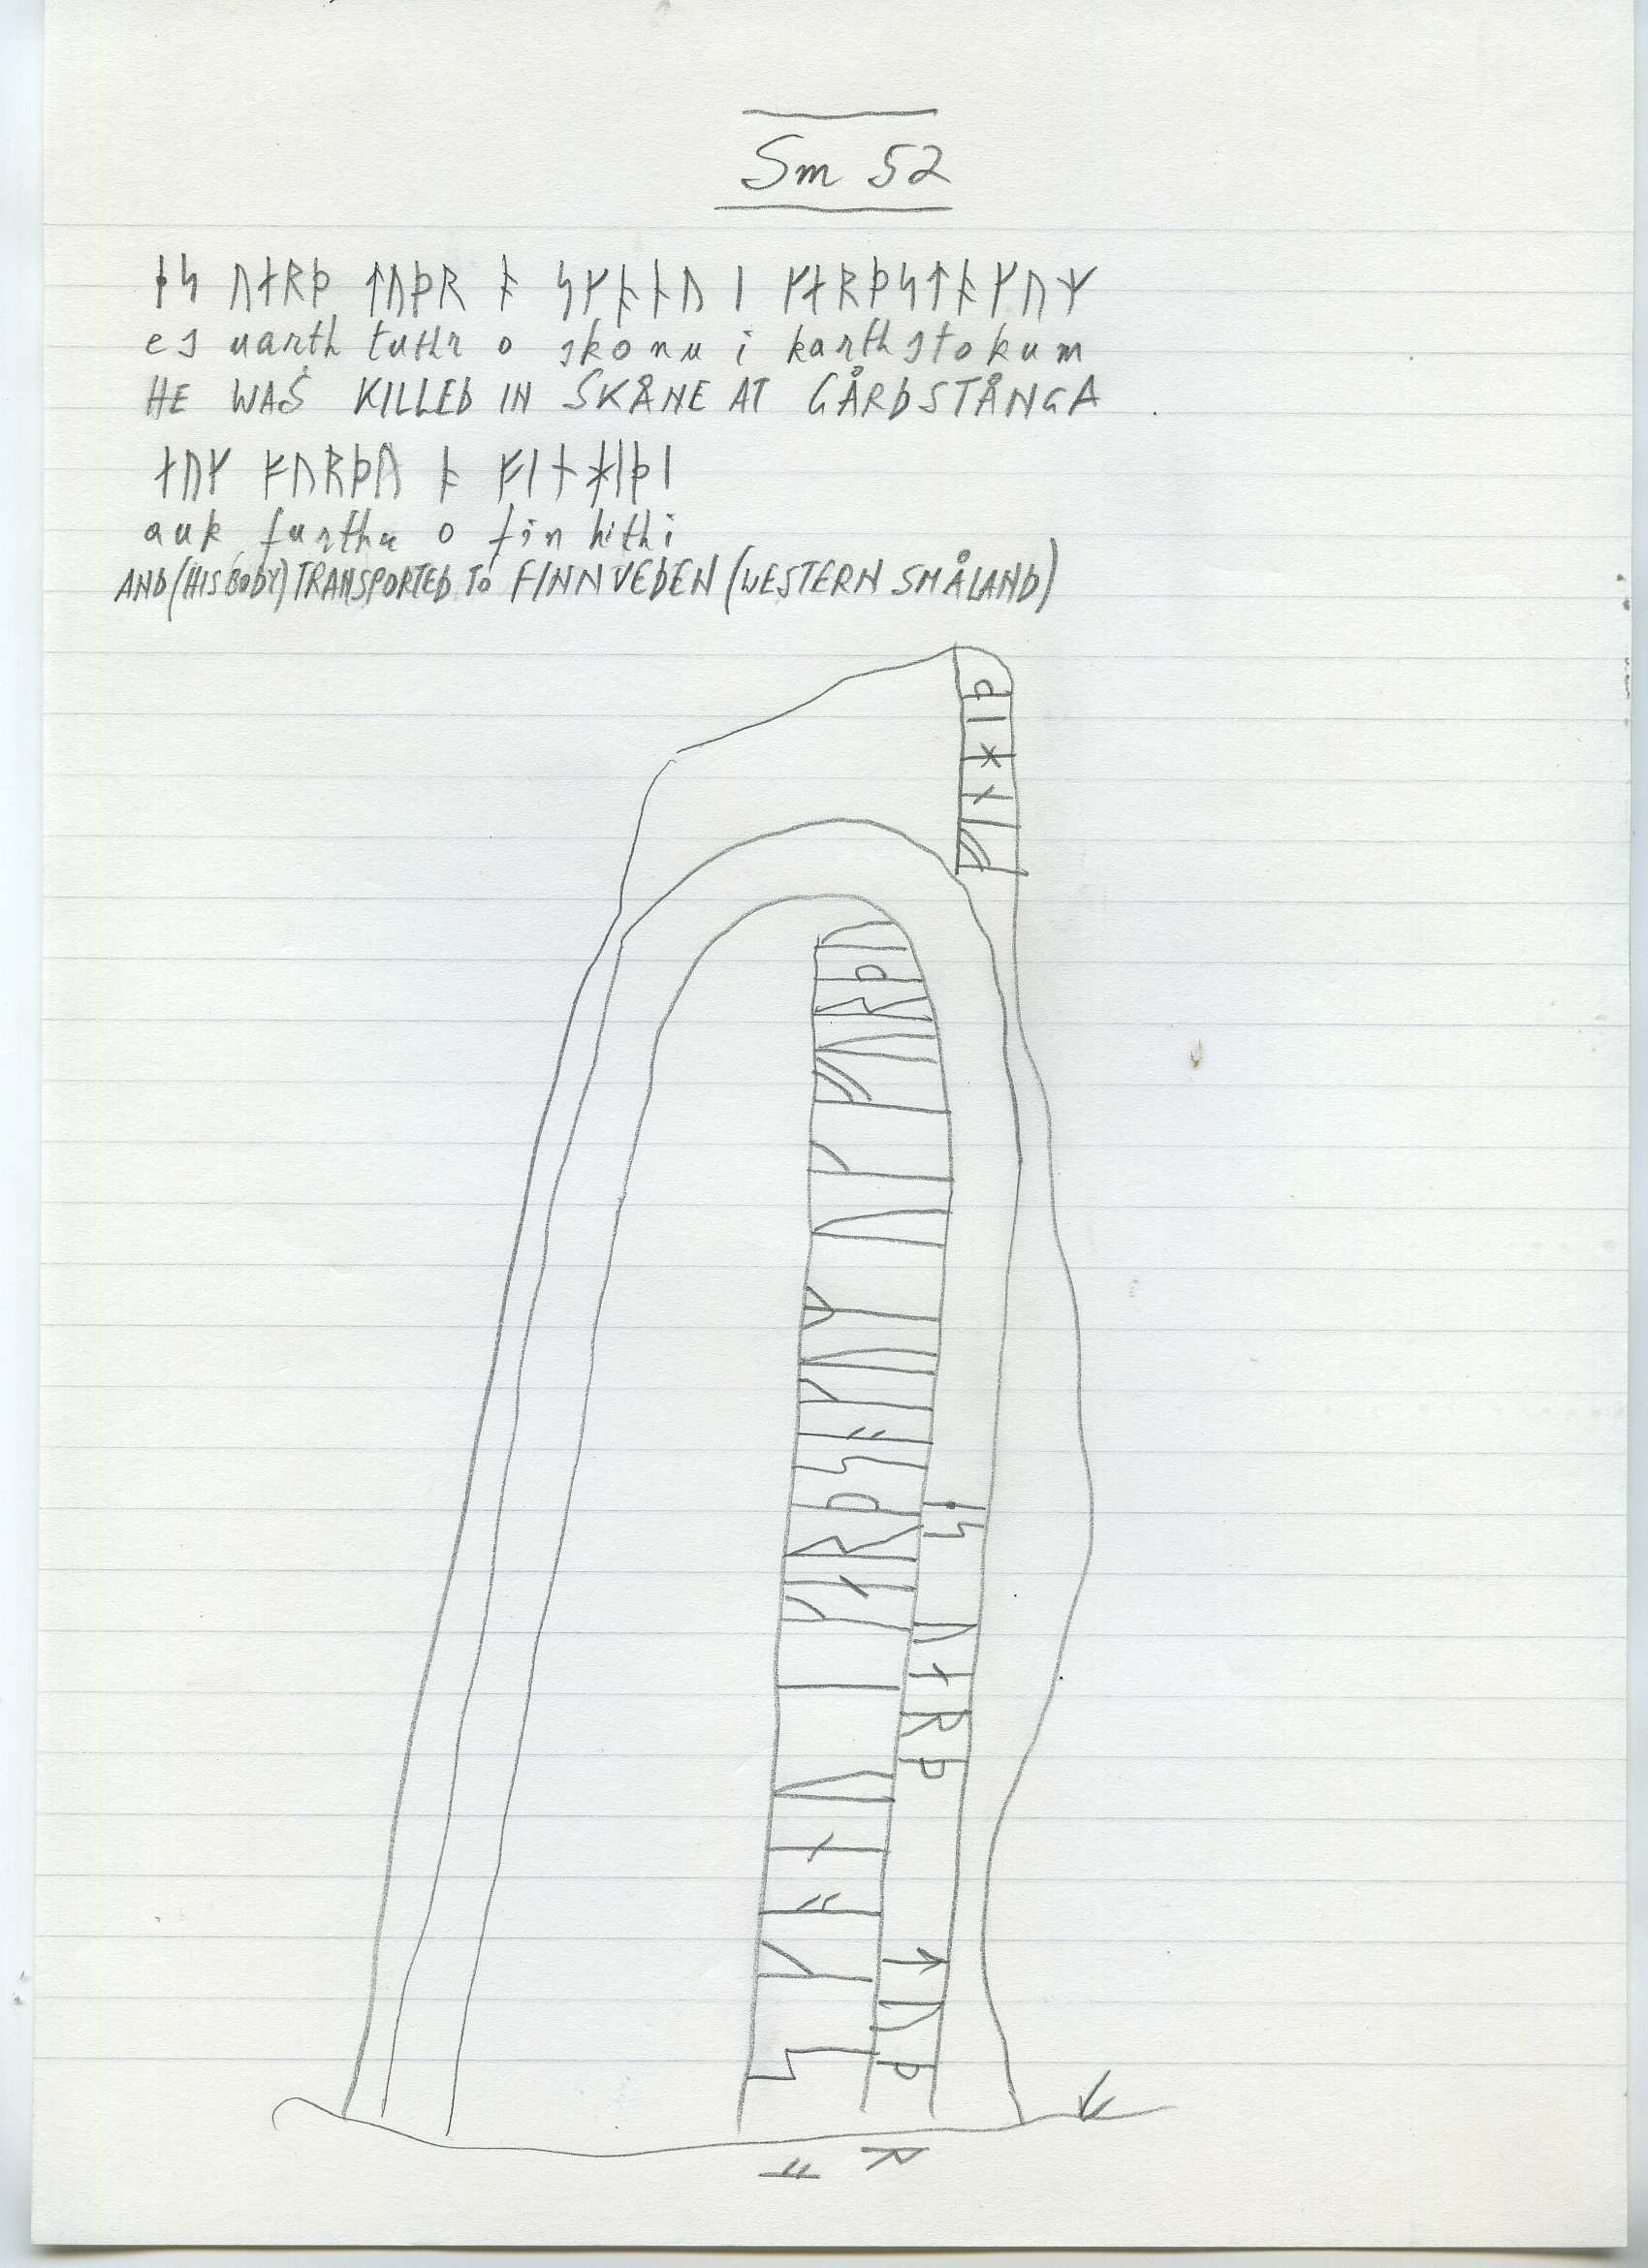 Sm 52
ᛂᛋ ᚢᛅᚱᚦ ᛏᚢᚦᚱ ᚬ ᛋᚴᚬᚾᚢ ᛁ ᚴᛅᚱᚦᛋᛏᚬᚴᚢᛘ
es uarth tuthr o skonu i karthstokum
HE WAS KILLED IN SKÅNE AT GÅRDSTÅNGA.
ᛅᚢᚴ ᚠᚢᚱᚦᚢ ᚬ ᚠᛁᚾᚼᛁᚦᛁ
auk furthu o fin hithi
AND (HIS BODY) TRANSPORTED TO FINNVEDEN (WESTERN SMÅLAND)
ᛂᛋ ᚢᛅᚱᚦ ᛏᚢᚦ
ᚱ
ᚬ
ᛋᚴᚬᚾᚢ ᛁ ᚴᛅᚱᚦᛋᚬᚴᚢᛘ ᚢᚴ ᚠᚢᚱᚦᚢ
ᚠᛁᚾᚼᛁᚦ